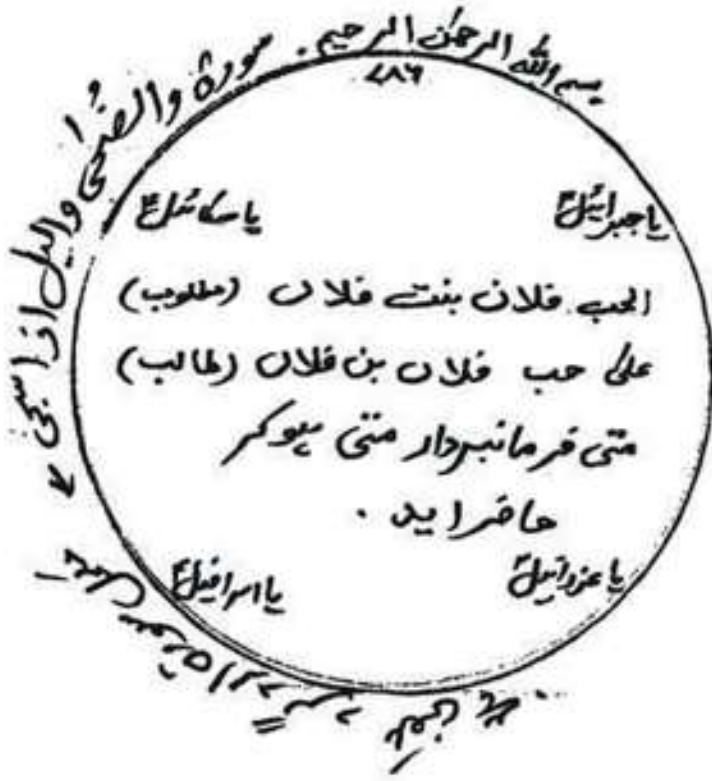 بسم اللہ الرحمٰن الرحیم. سورۃ والضحٰی والیل اذا سجیٰ
۷۸۶
یا جبرائیلؑ یا میکائیلؑ
الحب فلاں بنت فلاں (مطلوب)
علیٰ حب فلاں بن فلاں (طالب)
متی فرمانبردار متی ہوکر
حاضر اید .
یا عزرائیلؑ یا اسرافیلؑ